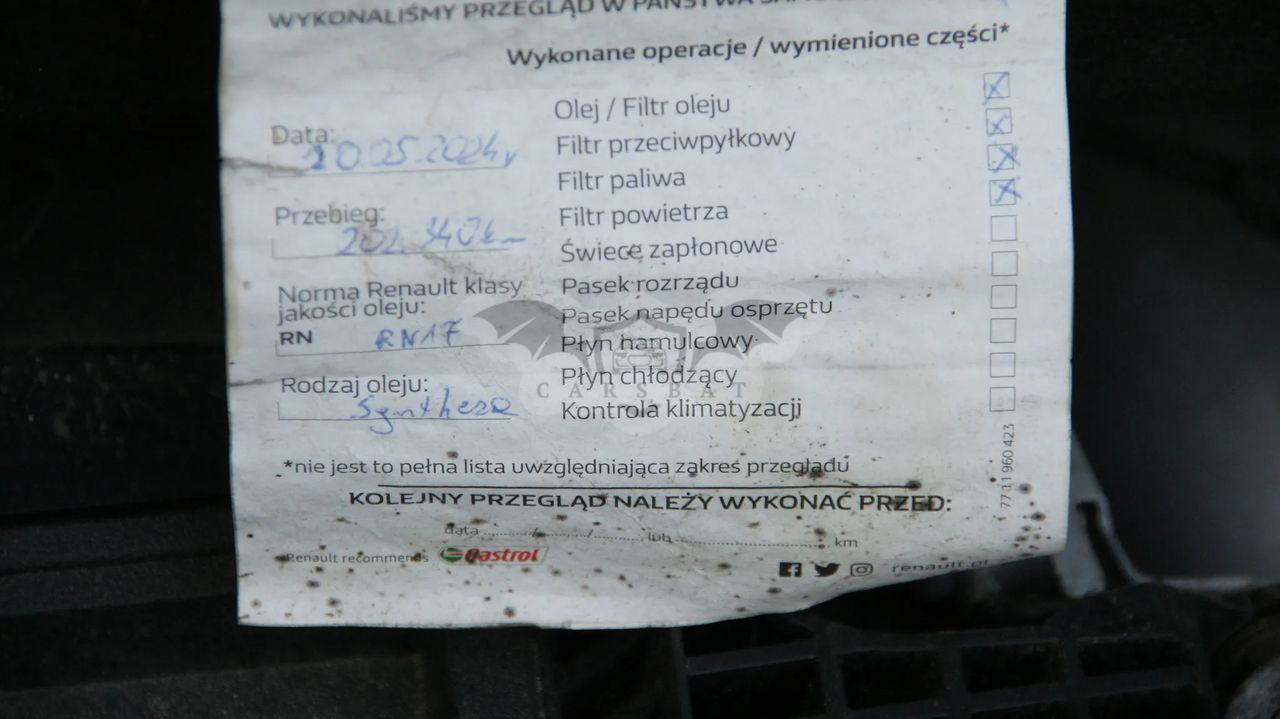 WYKONALIŚMY PRZEGLĄD W PAŃSTWA
Wykonane operacje / wymienione części*
Olej / Filtr oleju
Data:
20.05.2024r
Filtr przeciwpyłkowy
Filtr paliwa
Przebieg:
Filtr powietrza
Świece zapłonowe
Norma Renault klasy
jakości oleju:
RN RN17
Pasek rozrządu
Pasek napędu osprzętu
Płyn hamulcowy
Rodzaj oleju:
Płyn chłodzący
CARSBAT
Kontrola klimatyzacji
*nie jest to pełna lista uwzględniająca zakres przeglądu
KOLEJNY PRZEGLĄD NALEŻY WYKONAĆ PRZED:
data ........../........../.......... lub .............................. km
Renault recommends Castrol
renault.pl
77 11 960 423